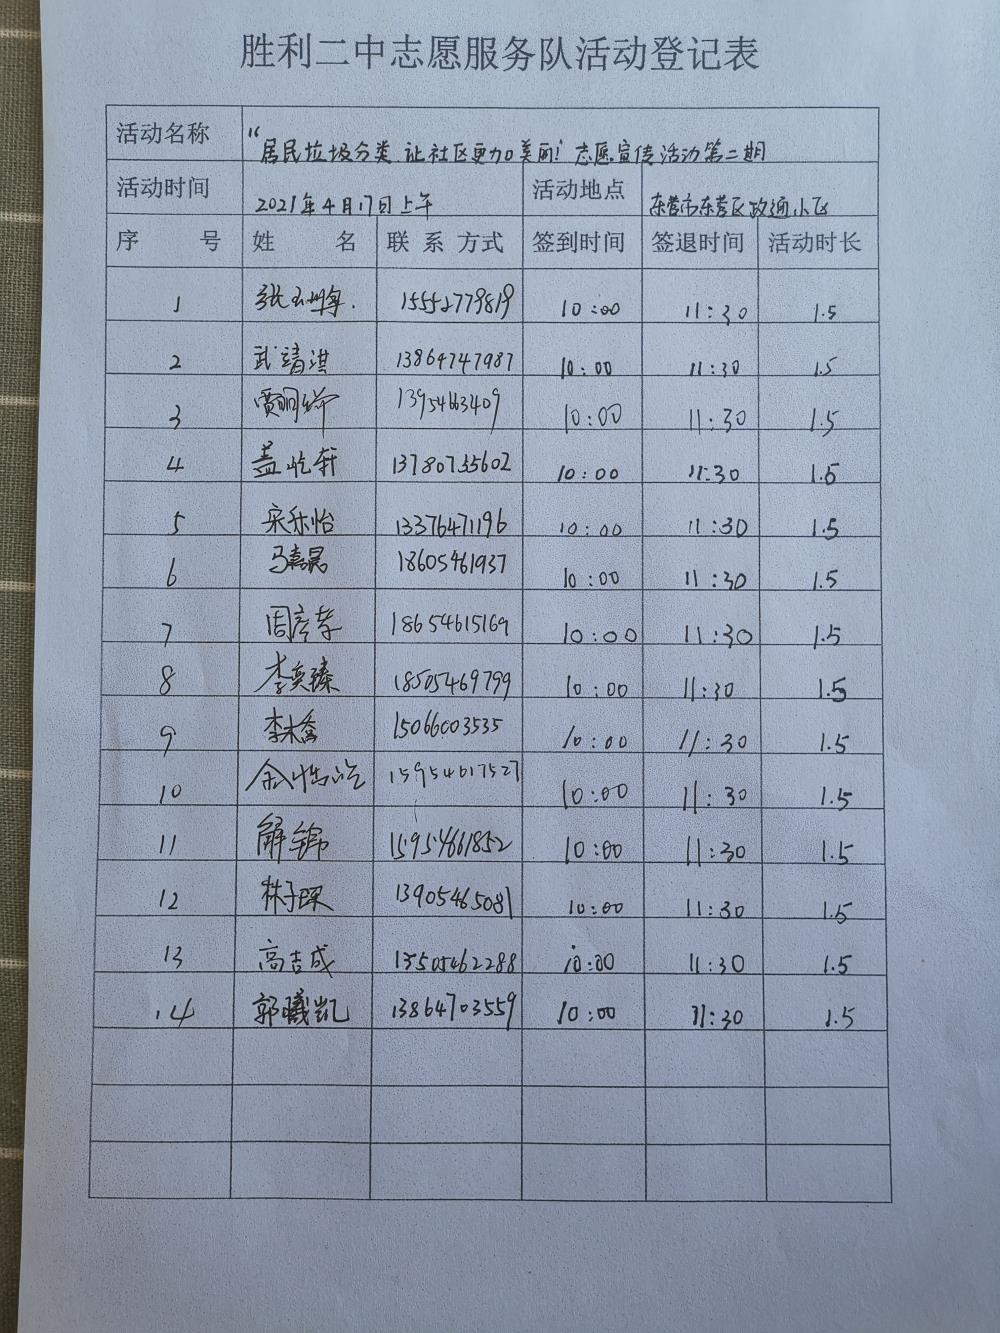 胜利二中志愿服务队活动登记表
活动名称 “居民垃圾分类 让社区更加美丽!”志愿宣传活动第二期
活动时间 2021年4月17日上午 活动地点 东营市东营区政通小区
序 号 姓 名 联系方式 签到时间 签退时间 活动时长
1 15552779819 10:00 11:30 1.5
2 武靖淇 13864747987 10:00 11:30 1.5
3 13954663409 10:00 11:30 1.5
4 盖忆轩 13780735602 10:00 11:30 1.5
5 宋乐怡 13376471196 10:00 11:30 1.5
6 马嘉晨 18605461937 10:00 11:30 1.5
7 周彦孝 18654615169 10:00 11:30 1.5
8 李奕臻 18505469799 10:00 11:30 1.5
9 李木乔 15066003535 10:00 11:30 1.5
10 15954617527 10:00 11:30 1.5
11 解锦 15954661852 10:00 11:30 1.5
12 林子琛 13905465081 10:00 11:30 1.5
13 高吉成 13505462288 10:00 11:30 1.5
14 郭曦凯 13864703559 10:00 11:30 1.5